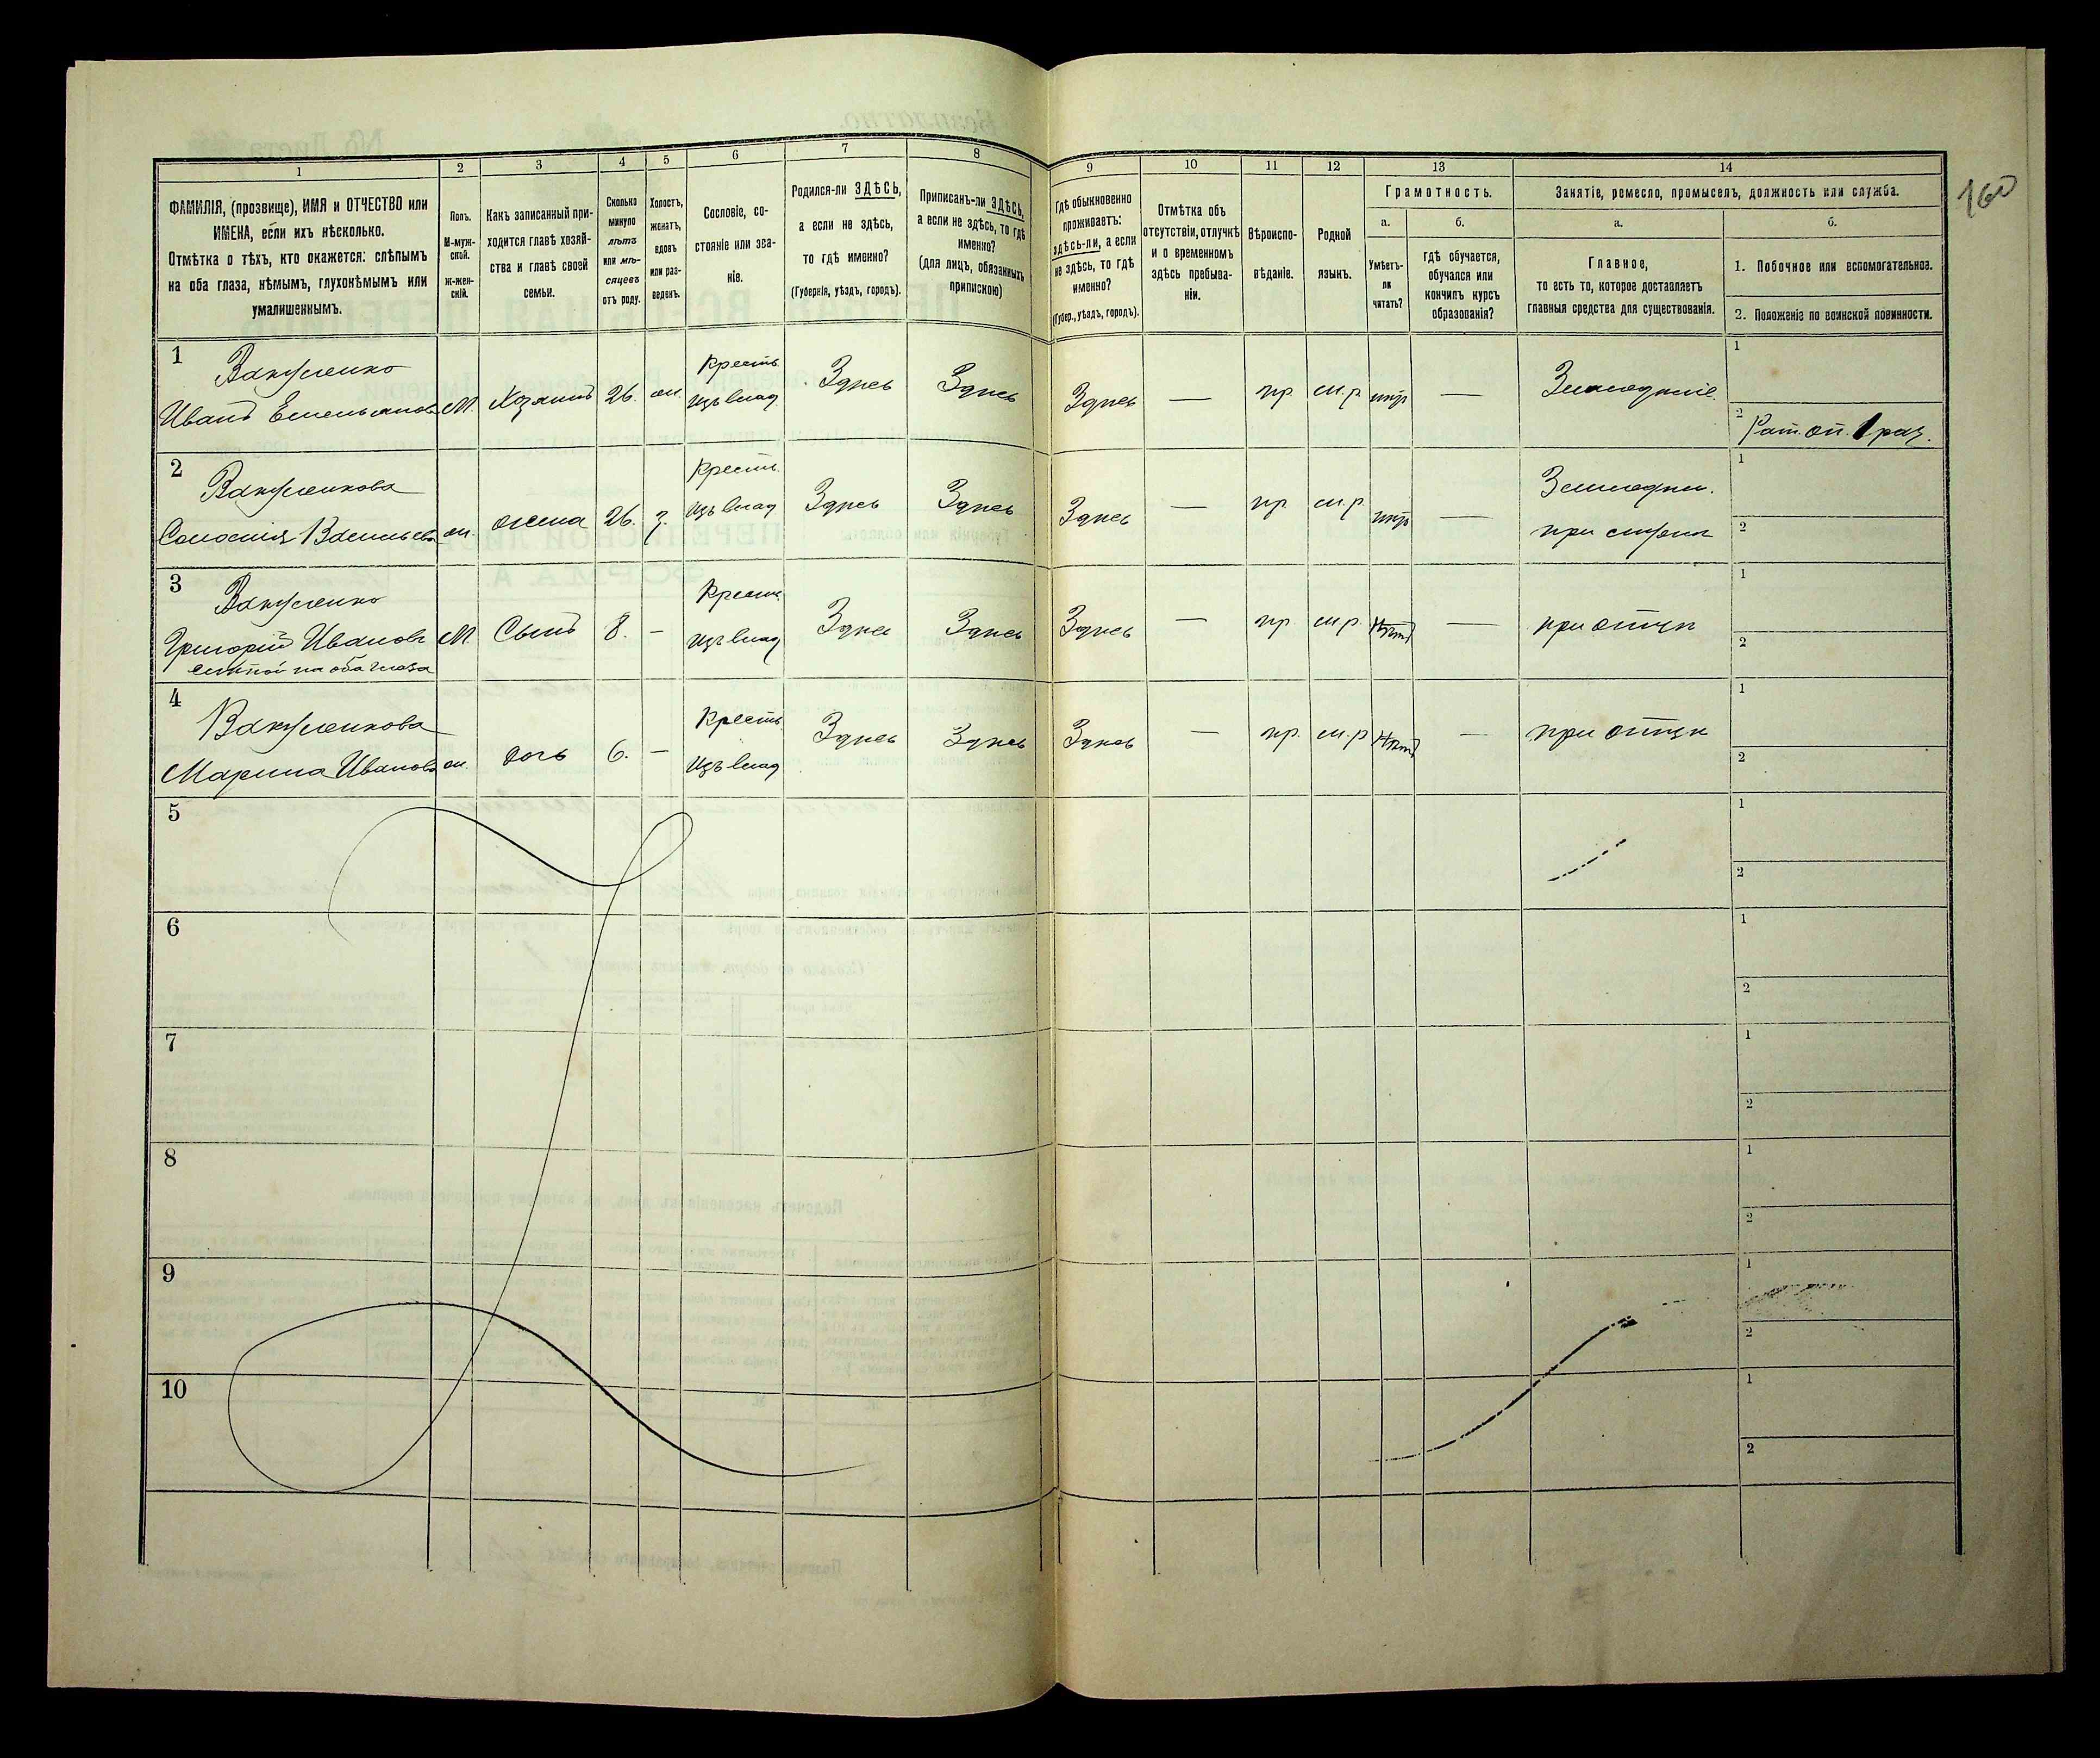 160
1
2
3
4
5
6
7
8
ФАМИЛІЯ, (прозвище), ИМЯ и ОТЧЕСТВО или
ИМЕНА, если ихъ нѣсколько.
Отмѣтка о тѣхъ, кто окажется: слѣпымъ
на оба глаза, нѣмымъ, глухонѣмымъ или
умалишеннымъ.
Полъ.
М-муж-
ской.
Ж-жен-
скій.
Какъ записанный при-
ходится главѣ хозяй-
ства и главѣ своей
семьи.
Сколько
минуло
лѣтъ
или мѣ-
сяцевъ
отъ роду.
Холостъ,
женатъ,
вдовъ
или раз-
веденъ.
Сословіе, со-
стояніе или зва-
ніе.
Родился-ли ЗДѢСЬ,
а если не здѣсь,
то гдѣ именно?
(Губернія, уѣздъ, городъ).
Приписанъ-ли ЗДѢСЬ,
а если не здѣсь, то гдѣ
именно?
(для лицъ, обязанныхъ
припискою)
9
10
11
12
13
14
Гдѣ обыкновенно
проживаетъ:
здѣсь-ли, а если
не здѣсь, то гдѣ
именно?
(Губер., уѣздъ, городъ).
Отмѣтка объ
отсутствіи, отлучкѣ
и о временномъ
здѣсь пребыва-
ніи.
Вѣроиспо-
вѣданіе.
Родной
языкъ.
Грамотность.
а.
б.
Умѣетъ-
ли
читать?
гдѣ обучается,
обучался или
кончилъ курсъ
образованія?
Занятіе, ремесло, промыселъ, должность или служба.
а.
б.
Главное,
то есть то, которое доставляетъ
главныя средства для существованія.
1. Побочное или вспомогательное.
2. Положеніе по воинской повинности.
1
Вакуленко
Иванъ Емельянов
М.
Хозяинъ
26.
ж.
Крестъ.
изъ влад.
Здѣсь
Здѣсь
Здѣсь
—
пр.
м.р.
нѣтъ
—
Земледѣліе.
1
2
Рат. оп. 1 раз.
2
Вакуленкова
Соломія Васильева
ж.
жена
26.
з.
Крестъ.
изъ влад
Здѣсь
Здѣсь
Здѣсь
—
пр
м.р.
нѣтъ
—
Земледѣл.
при мужѣ
1
2
3
Вакуленко
Григорій Иванов
слѣпой на оба глаза
М.
Сынъ
8.
—
Крестъ.
изъ влад
Здѣсь
Здѣсь
Здѣсь
—
пр
м.р.
нѣтъ
—
при отцѣ
1
2
4
Вакуленкова
Марина Иванова
ж.
дочь
6.
—
Крестъ
изъ влад
Здѣсь
Здѣсь
Здѣсь
—
пр.
м.р
нѣтъ
—
при отцѣ
1
2
5
1
2
6
1
2
7
1
2
8
1
2
9
1
2
10
1
2